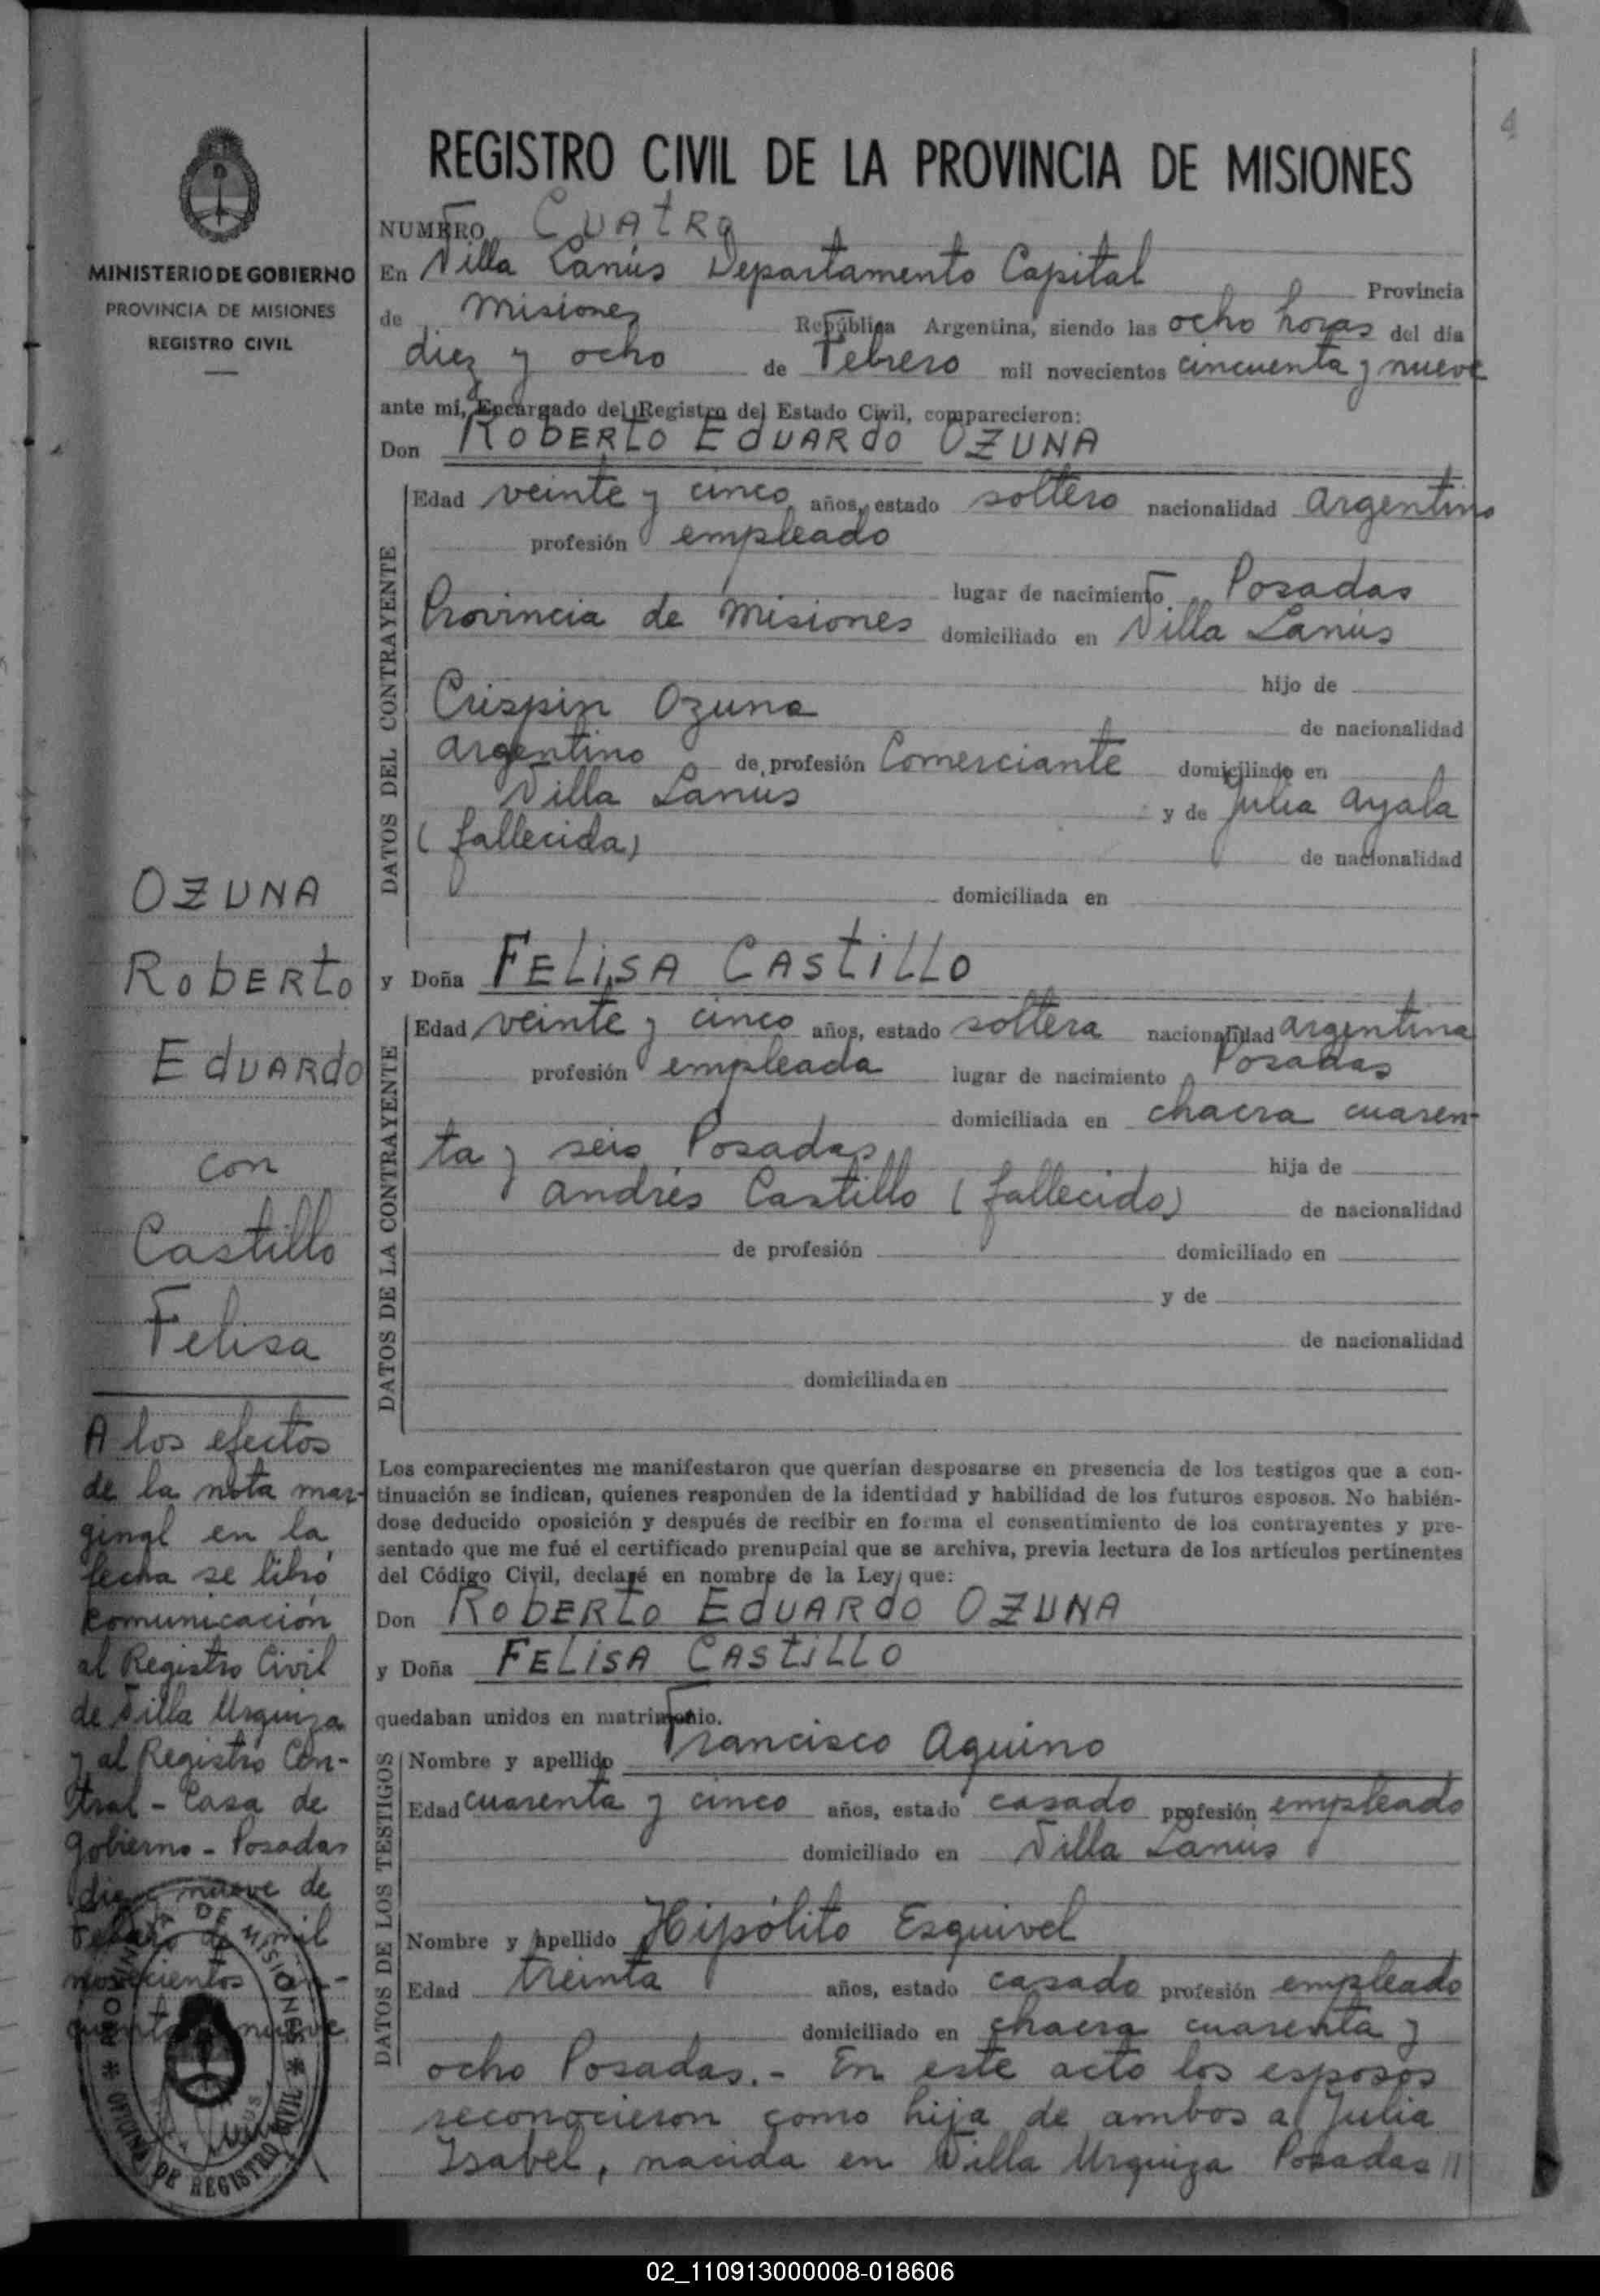 4
REGISTRO CIVIL DE LA PROVINCIA DE MISIONES
MINISTERIO DE GOBIERNO
PROVINCIA DE MISIONES
REGISTRO CIVIL
NUMERO CUAtRo
En Villa Lanús Departamento Capital Provincia
de Misiones República Argentina, siendo las ocho horas del día
diez y ocho de Febrero mil novecientos cincuenta y nueve
ante mi, Encargado del Registro del Estado Civil, comparecieron:
Don RobERto EdUARdo OZUNA
DATOS DEL CONTRAYENTE
Edad veinte y cinco años, estado soltero nacionalidad argentino
profesión empleado
lugar de nacimiento Posadas
Provincia de Misiones domiciliado en Villa Lanús
hijo de
Crispin Ozuna de nacionalidad
argentino de profesión Comerciante domiciliado en
Villa Lanus y de Julia Ayala
(fallecida) de nacionalidad
domiciliada en
y Doña FELiSA CAStiLLo
DATOS DE LA CONTRAYENTE
Edad veinte y cinco años, estado soltera nacionalidad argentina
profesión empleada lugar de nacimiento Posadas
domiciliada en chacra cuaren-
ta y seis Posadas hija de
Andrés Castillo (fallecido) de nacionalidad
de profesión domiciliado en
y de
de nacionalidad
domiciliada en
Los comparecientes me manifestaron que querían desposarse en presencia de los testigos que a con-
tinuación se indican, quienes responden de la identidad y habilidad de los futuros esposos. No habién-
dose deducido oposición y después de recibir en forma el consentimiento de los contrayentes y pre-
sentado que me fué el certificado prenupcial que se archiva, previa lectura de los artículos pertinentes
del Código Civil, declaré en nombre de la Ley que:
Don RobERto EdUARdo OZUNA
y Doña FELiSA CAStiLLO
quedaban unidos en matrimonio.
DATOS DE LOS TESTIGOS
Nombre y apellido Francisco Aquino
Edad cuarenta y cinco años, estado casado profesión empleado
domiciliado en Villa Lanús
Nombre y apellido Hipólito Esquivel
Edad treinta años, estado casado profesión empleado
domiciliado en chacra cuarenta y
ocho Posadas.- En este acto los esposos
reconocieron como hija de ambos a Julia
Isabel, nacida en Villa Urquiza Posadas //
OZUNA
RobERto
EdUARdo
con
Castillo
Felisa
A los efectos
de la nota mar-
ginal en la
fecha se libró
comunicación
al Registro Civil
de Villa Urquiza
y al Registro Cen-
tral - Casa de
Gobierno - Posadas
diez y nueve de
Febrero de mil
novecientos cin-
cuenta y nueve
PROVINCIA DE MISIONES
OFICINA DE REGISTRO CIVIL
02_110913000008-018606